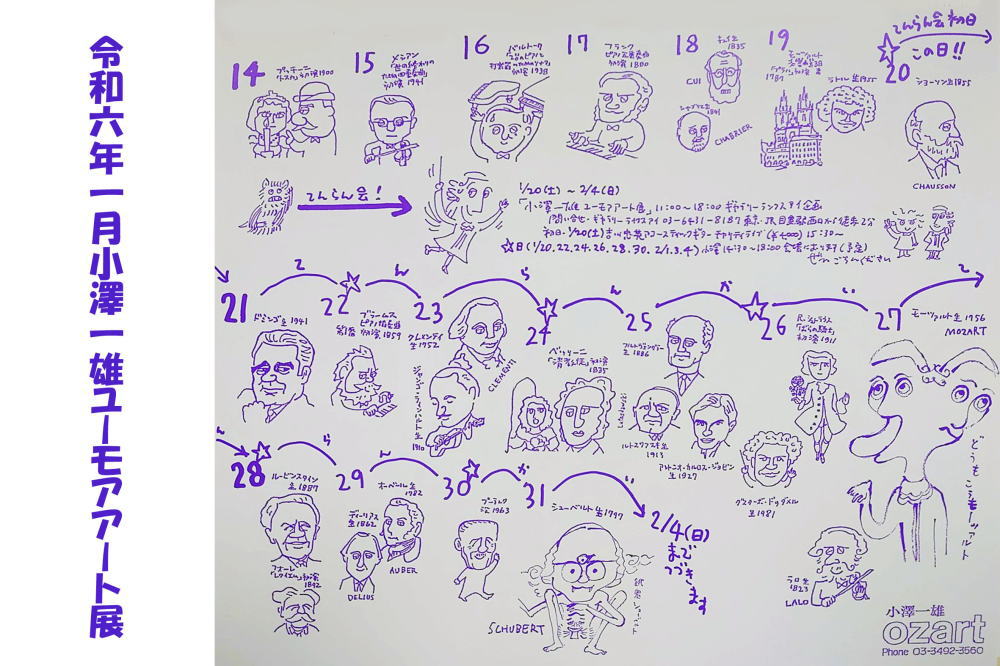 令和六年一月小澤一雄ユーモアアート展
14
プッチーニ
「トスカ」初演1900
15
メシアン
「世の終わりの
ための四重奏曲」
初演 1941
16
バルトーク
「2台のピアノと
打楽器のためのソナタ」
初演 1938
17
フランク
ピアノ五重奏曲
初演 1880
18
キュイ生
1835
CUI
シャブリエ生
1841
CHABRIER
19
モーツァルト
1787
ラトル 生1955
てんらん会初日
この日!!
20
ショーソン生1855
CHAUSSON
てんらん会!
1/20(土)~2/4(日)
「小澤一雄 ユーモアアート展」11:00~18:00 ギャラリー
問い合せ・ギャラリー 03-6431-8187 東京・JR目黒駅西口から徒歩2分
初日・1/20(土) アコースティックギター チャリティライブ 15:30~
☆日(1/20.22.24.26.28.30.2/1.3.4)小澤 14:30~18:00 会場におります(予定)
ぜひごらんください
21
て
22
ん
23
ら
24
ん
25
か
26
い
27
て
ドミンゴ生1941
ブラームス
ピアノ協奏曲
第1番 初演1859
クレメンティ
生1752
CLEMENTI
ジャンゴ・ラインハルト生1910
ベッリーニ
「清教徒」初演
1835
フルトヴェングラー
生1886
Lutosławski
ルトスワフスキ生
1913
アントニオ・カルロス・ジョビン
生1927
R.シュトラウス
「ばらの騎士」
初演1911
グスターボ・ドゥダメル
生1981
モーツァルト生1756
MOZART
どうもこうもモーツァルト
ん
28
ら
29
ん
30
か
31
い
2/4(日)
まで
つづきます
ルービンスタイン
生1887
フォーレ
「レクイエム」初演
ディーリアス
生1862
DELIUS
オーベール生
1782
AUBER
プーランク
没1963
シューベルト生1797
SCHUBERT
ラロ生
1823
LALO
小澤一雄
ozart
Phone 03-3492-3560